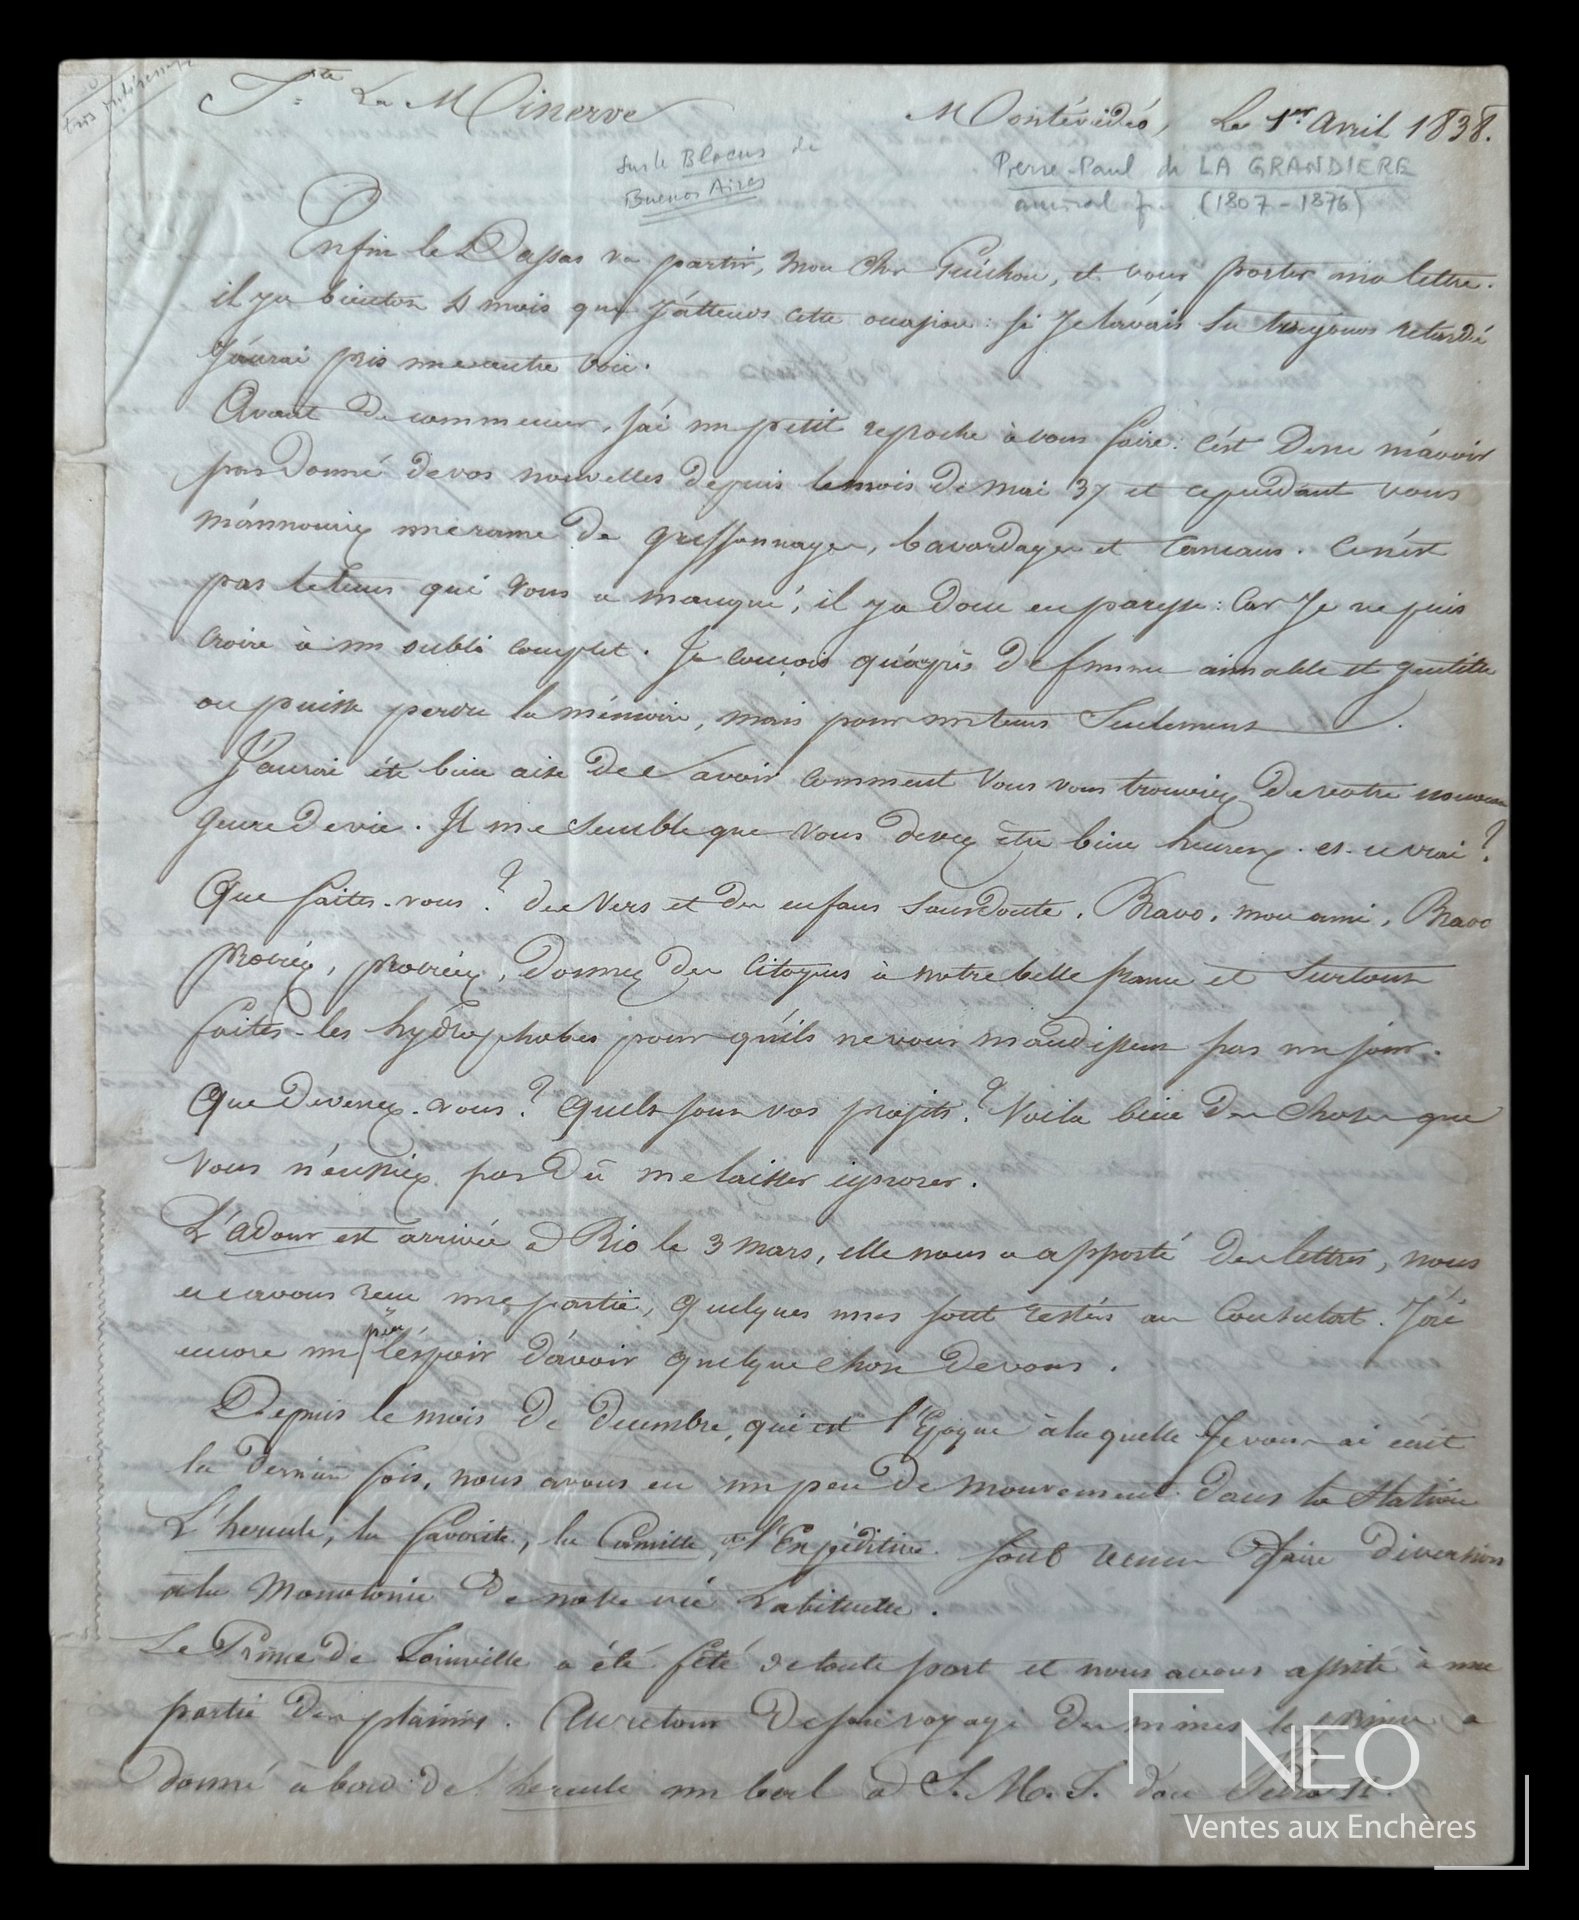 très intéressant
F.te La Minerve
Montévidéo, Le 1er Avril 1838.
Sur le Blocus de
Buenos Aires
Pierre-Paul de LA GRANDIERE
amiral fr. (1807-1876)
Enfin le Dassas va partir, mon cher Guichon, et vous porter ma lettre.
il y a bientôt 4 mois que j'attends cette occasion : si je l'avais su toujours retardé
j'aurai pris une autre voie.
Avant de commencer, j'ai un petit reproche à vous faire : c'est de ne m'avoir
pas donné de vos nouvelles depuis le mois de mai 37 et cependant vous
m'annonciez une rame de griffonnages, bavardages et cancans. Ce n'est
pas le tems qui vous a manqué, il y a donc eu paresse : car je ne puis
croire à un oubli complet. Je conçois qu'après de femme aimable et gentille
on puisse perdre la mémoire, mais pour un tems seulement.
J'aurai été bien aise de savoir comment vous vous trouviez de votre nouveau
genre de vie. Il me semble que vous devez être bien heureux. est-ce vrai ?
Que faites-vous ? des vers et des enfans sans doute. Bravo, mon ami, Bravo
, donnez des citoyens à notre belle france et surtout
faites-les hydrophobes pour qu'ils ne vous maudissent pas un jour.
Que devenez-vous ? Quels sont vos projets ? Voila bien des choses que
vous n'eussiez pas dû me laisser ignorer.
L'adour est arrivée à Rio le 3 mars, elle nous a apporté des lettres, nous
en avons reçu une partie, quelques unes sont restées au Consulat. J'ai
encore un peu l'éspoir d'avoir quelque chose de vous.
Depuis le mois de decembre, qui est l'Epoque à la quelle je vous ai écrit
la dernière fois, nous avons eu un peu de mouvement dans la station
L'hercule, la favorite, la Camille, et l'Expéditive sont venus faire diversion
à la monotonie de notre vie habituelle.
Le Prince de Joinville a été fêté de toute part et nous avons assisté à une
partie des plaisirs. Au retour de son voyage des mines le Prince a
donné à bord de l'hercule un bal à S. M. I. don Pedro II.
NEO
Ventes aux Enchères